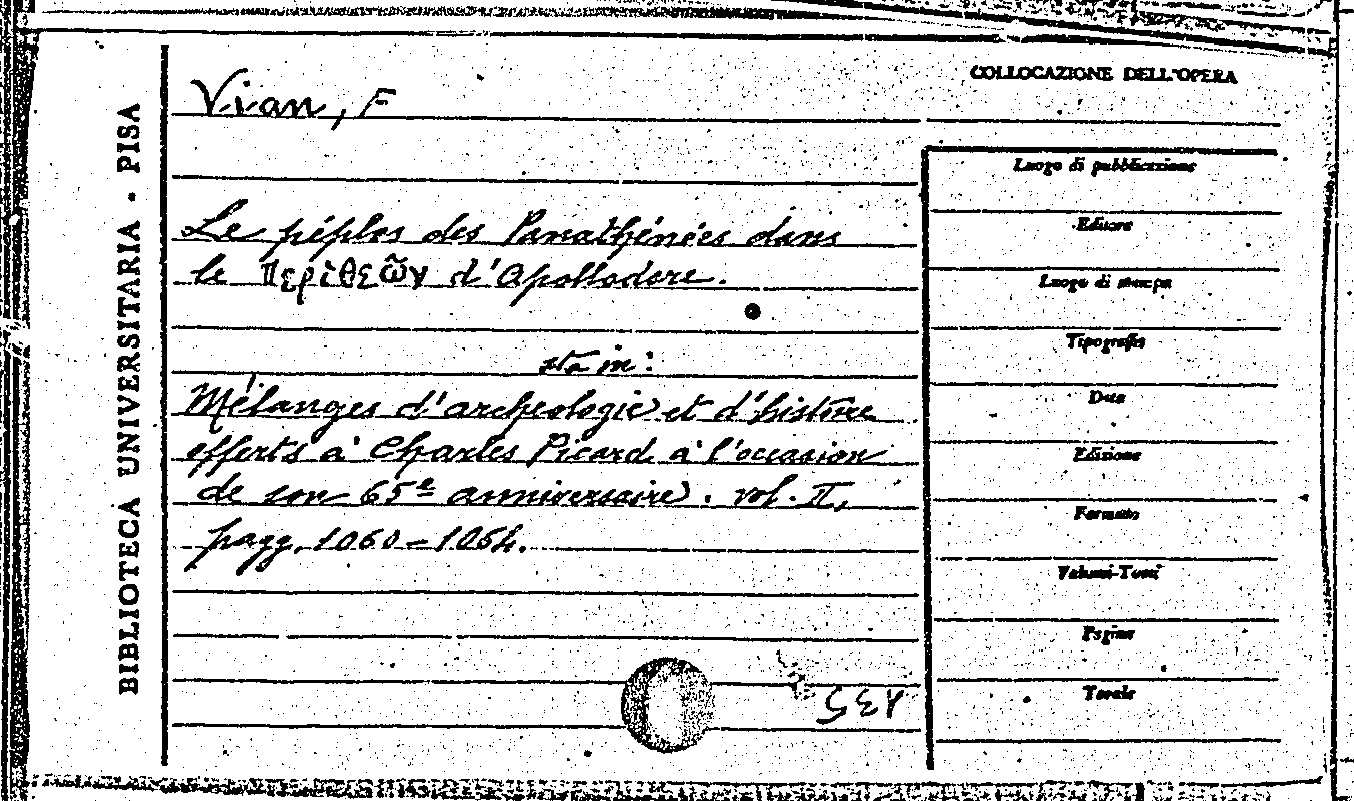 BIBLIOTECA UNIVERSITARIA - PISA
Vian, F
Le péplos des Panathénées dans
le περὶθεῶν d'Apollodore.
sta in:
Mélanges d'archeologie et d'histoire
offerts à Charles Picard à l'occasion
de son 65e anniversaire. vol. II,
pagg. 1060-1064.
COLLOCAZIONE DELL'OPERA
Luogo di pubblicazione
Editore
Luogo di stampa
Tipografia
Data
Edizione
Formato
Volumi-Tomi
Pagine
Totale